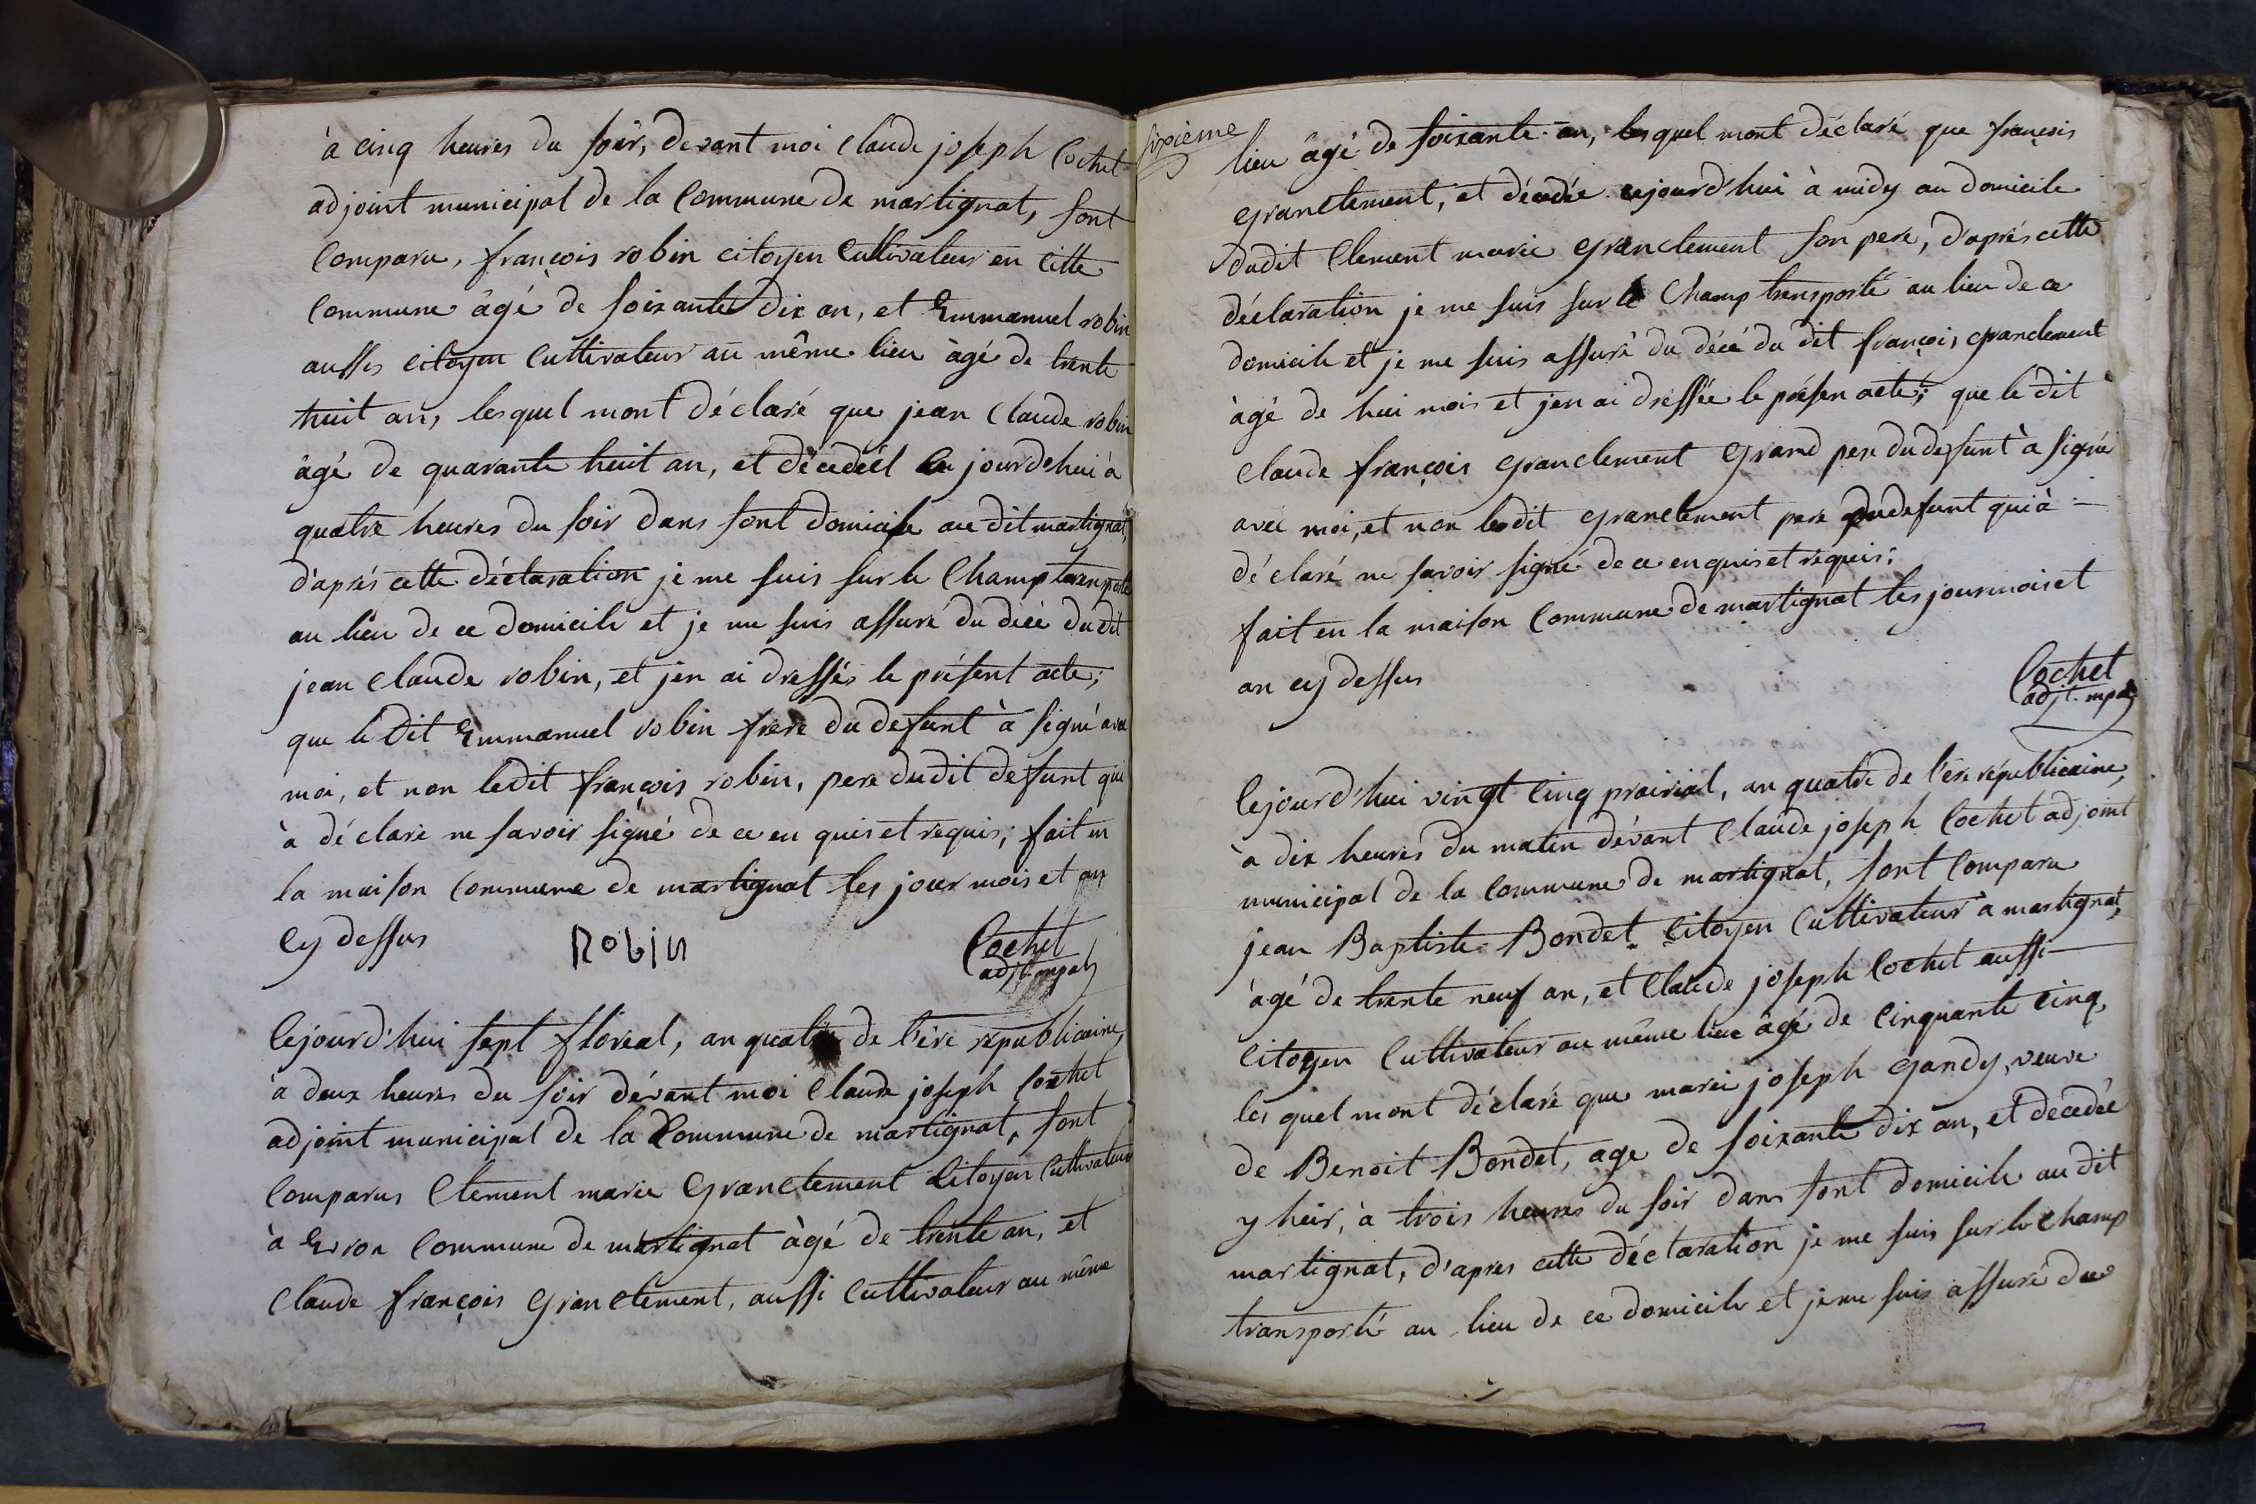 à cinq heures du soir, devant moi Claude joseph Cochet
adjoint municipal de la Commune de martignat, sont
Comparu, françois robin citoyen Cultivateur en cette
Commune âgé de soixante dix an, et Emmanuel robin
aussi citoyen Cultivateur au même lieu âgé de trente
huit an, lesquel mont déclaré que jean Claude robin
âgé de quarante huit an, et décedéél ce jourdehui à
quatre heures du soir dans sont domicile au dit martignat,
d'aprés cette déclaration je me suis sur le Champ transporté
au lieu de ce domicile et je me suis assuré du décé dudit
jean Claude robin, et jen ai dressés le présent acte;
que le dit Emmanuel robin frere du defunt à signé avec
moi, et non ledit françois robin, pere dudit defunt qui
à déclaré ne savoir signé de ce en quis et requis; fait en
la maison Commune de martignat les jour mois et an
cy dessus
Robin
Cochet
adjt. mpal
Cejourd'hui sept floreal, an quatre de l'ére républicaine,
à deux heures du soir dévant moi Claude joseph Cochet
adjoint municipal de la Commune de martignat, sont
Comparus Clement marie Granclement Citoyen Cultivateur
à Evron Commune de martignat àgé de trente an, et
Claude françois Granclement, aussi Cultivateur au même
sixieme
lieu âgé de soixante an, lesquel mont déclaré que françois
Granclement, et décedée cejourd'hui à midy au domicile
dudit Clement marie Granclement son pere, d'aprés cette
déclaration je me suis sur le Champ transporté au lieu de ce
domicile et je me suis assuré du décé du dit françois Granclement
àgé de hui mois et jen ai dressée le présen acte; que le dit
Claude françois Granclement Grand pere du defunt à signé
avec moi, et non ledit Granclement pere dudefunt qui à
déclaré ne savoir signé de ce enquis et requis;
fait en la maison Commune de martignat les jour mois et
an cy dessus
Cochet
adjt. mpal
Cejourd'hui vingt Cinq prairial, an quatre de l'ére républicaine,
à dix heures du matin dévant Claude joseph Cochet adjoint
municipal de la Commune de martignat, sont Comparu
jean Baptiste Bondet Citoyen Cultivateur à martignat,
âgé de trente neuf an, et Claude joseph Cochet aussi
Citoyen Cultivateur au même lieu âgé de Cinquante Cinq,
les quel mont déclaré que marie joseph Gandy, veuve
de Benoit Bondet, age de soixante dix an, et decedée
y heir, à trois heures du soir dans sont domicile au dit
martignat, d'apres cette déclaration je me suis sur le Champ
transporté au lieu de ce domicile et je me suis assuré du